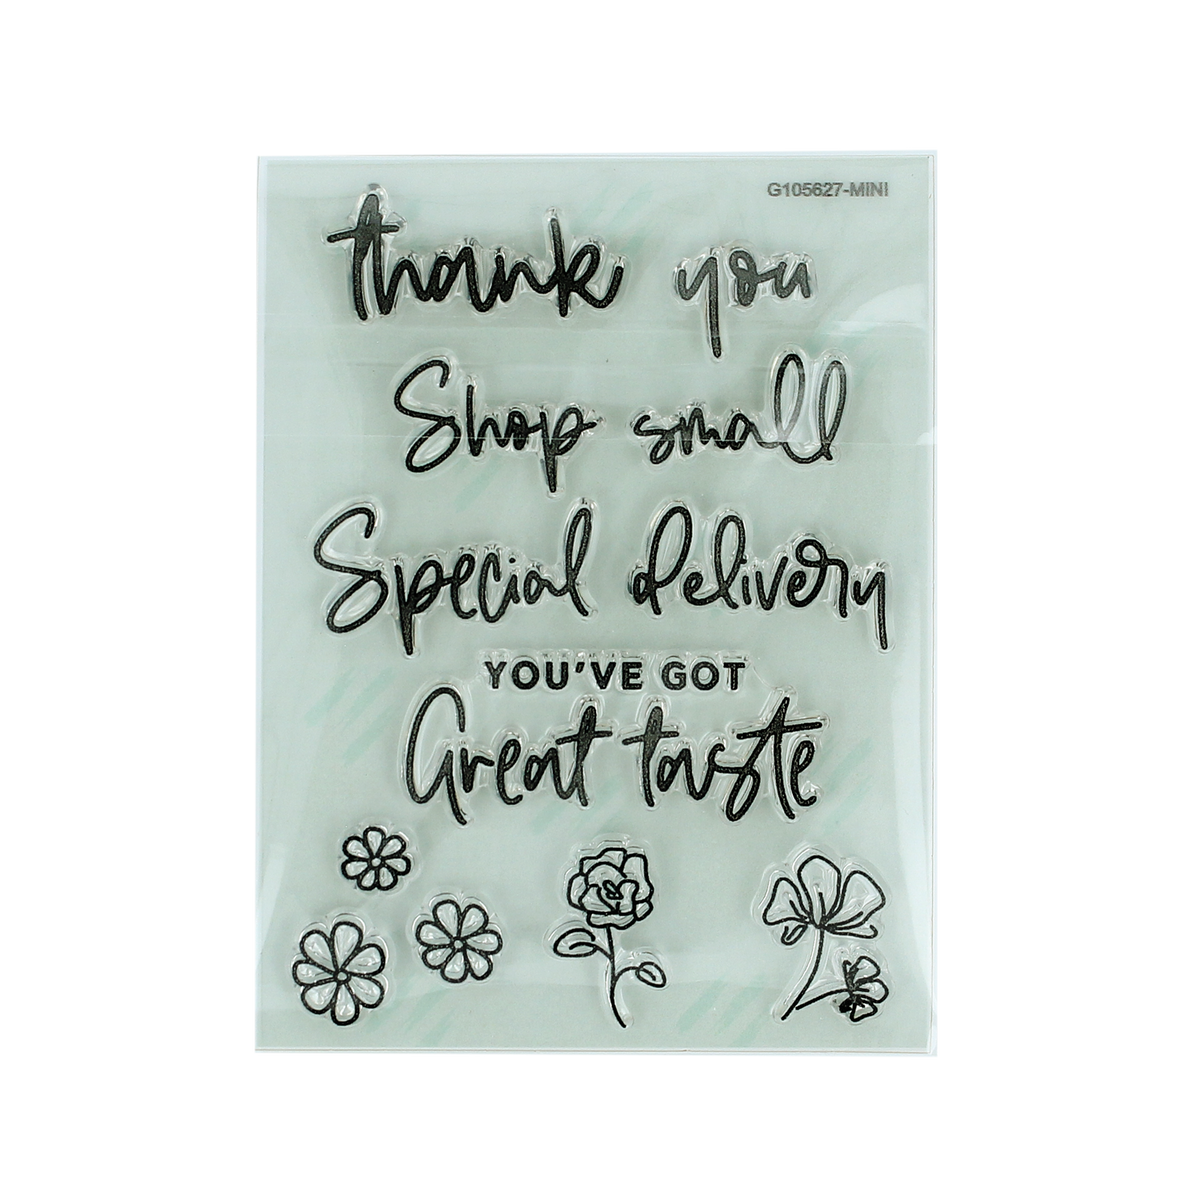 G105627-MINI
thank you
Shop small
Special delivery
YOU'VE GOT
Great taste